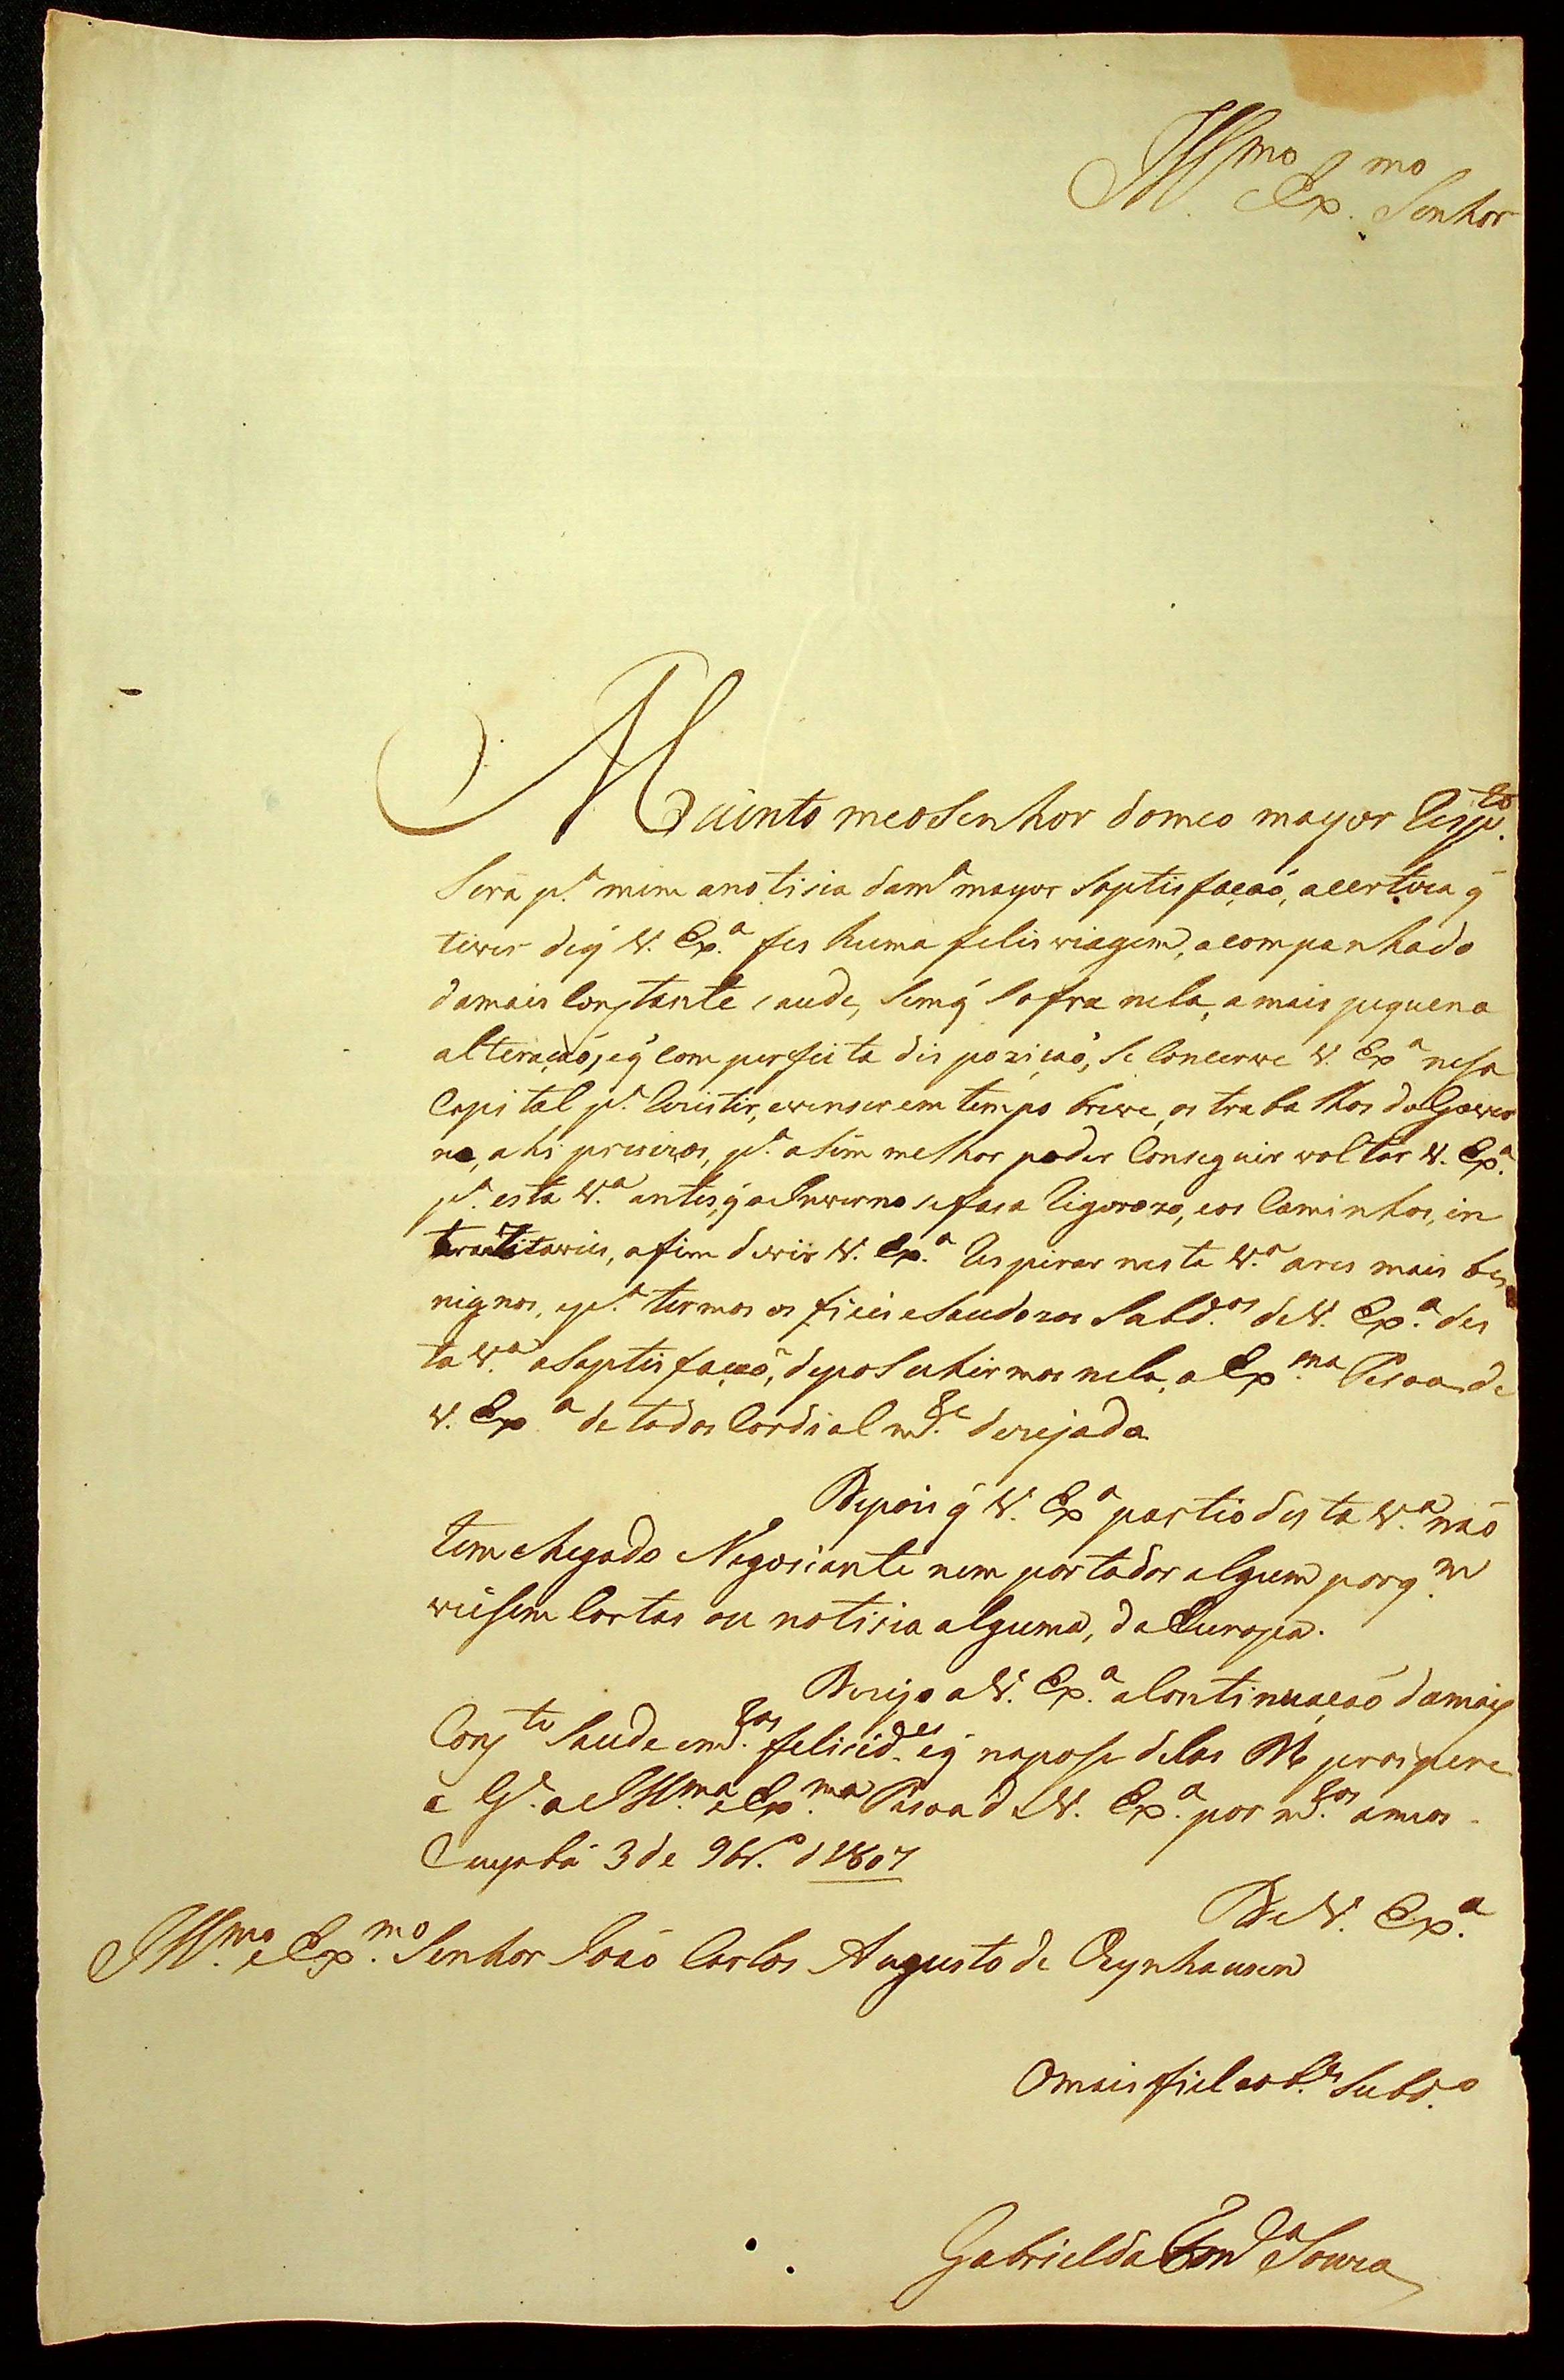 Ill.mo Ex.mo Senhor
Muinto meo Senhor do meo mayor Resp.to
Será p.a mim a notisia da m.a mayor saptisfaçaõ, a certeza q̃
tiver de q̃ V. Ex.a fes huma felis viagem, acompanhado
da mais Constante saude, sem q̃ sofra nela, a mais piquena
alteraçaõ, e q̃ com perfeita dispoziçaõ, se Concerve V. Ex.a nesa
Capital p.a Rezistir, e venser em tempo breve, os trabalhos do Gover
no, ahi presizos, p.a asim melhor poder Conseguir voltar V. Ex.a
p.a esta V.a antes q̃ o Inverno se fasa Rigorozo, e os Caminhos, in
tranzitaveis, afim de vir V. Ex.a Respirar nesta V.a ares mais be
nignos, e p.a termos os fieis e saudozos Subd.os de V. Ex.a des
ta V.a a saptisfaçaõ, de posuhirmos nela, a Ex.ma Pesoa de
V. Ex.a de todos Cordialm.te dezejada
Depois q̃ V. Ex.a partio desta V.a naõ
tem chegado Negosiante nem portador algum por q.m
viesem Cartas ou notisia alguma, da Europa.
Dezejo a V. Ex.a a Continuaçaõ da mais
Const.e Saude e m.tas felisid.es e q̃ na pose delas prospere
e G.e a Ill.ma e Ex.ma Pesoa de V. Ex.a por m.tos annos
Cuyabá 3 de 9br.o d 1807
De V. Ex.a
Ill.mo e Ex.mo Senhor Joaõ Carlos Augusto de Oeynhausen
O mais fiel e ob.te Subd.o
Gabriel da Fon.ca Souza